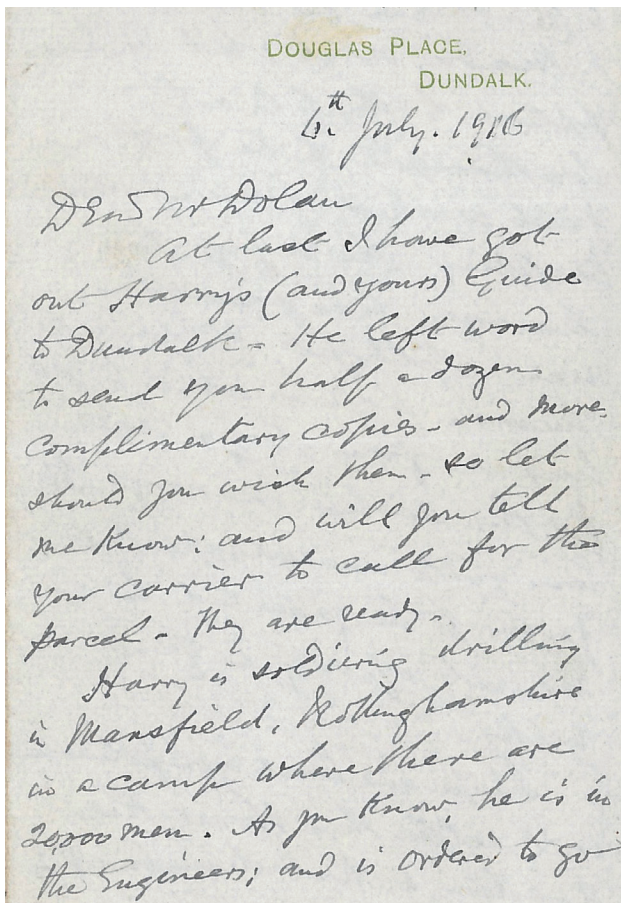 DOUGLAS PLACE,
DUNDALK.
6th July. 1916
Dear Mr Dolan
At last I have got
out Harry's (and yours) Guide
to Dundalk - He left word
to send you half a dozen
complimentary copies - and more
should you wish them - so let
me know: and will you tell
your carrier to call for the
parcel - They are ready -
Harry is soldiering drilling
in Mansfield, Nottinghamshire
in a camp where there are
20,000 men. As you know, he is in
the Engineers; and is ordered to go